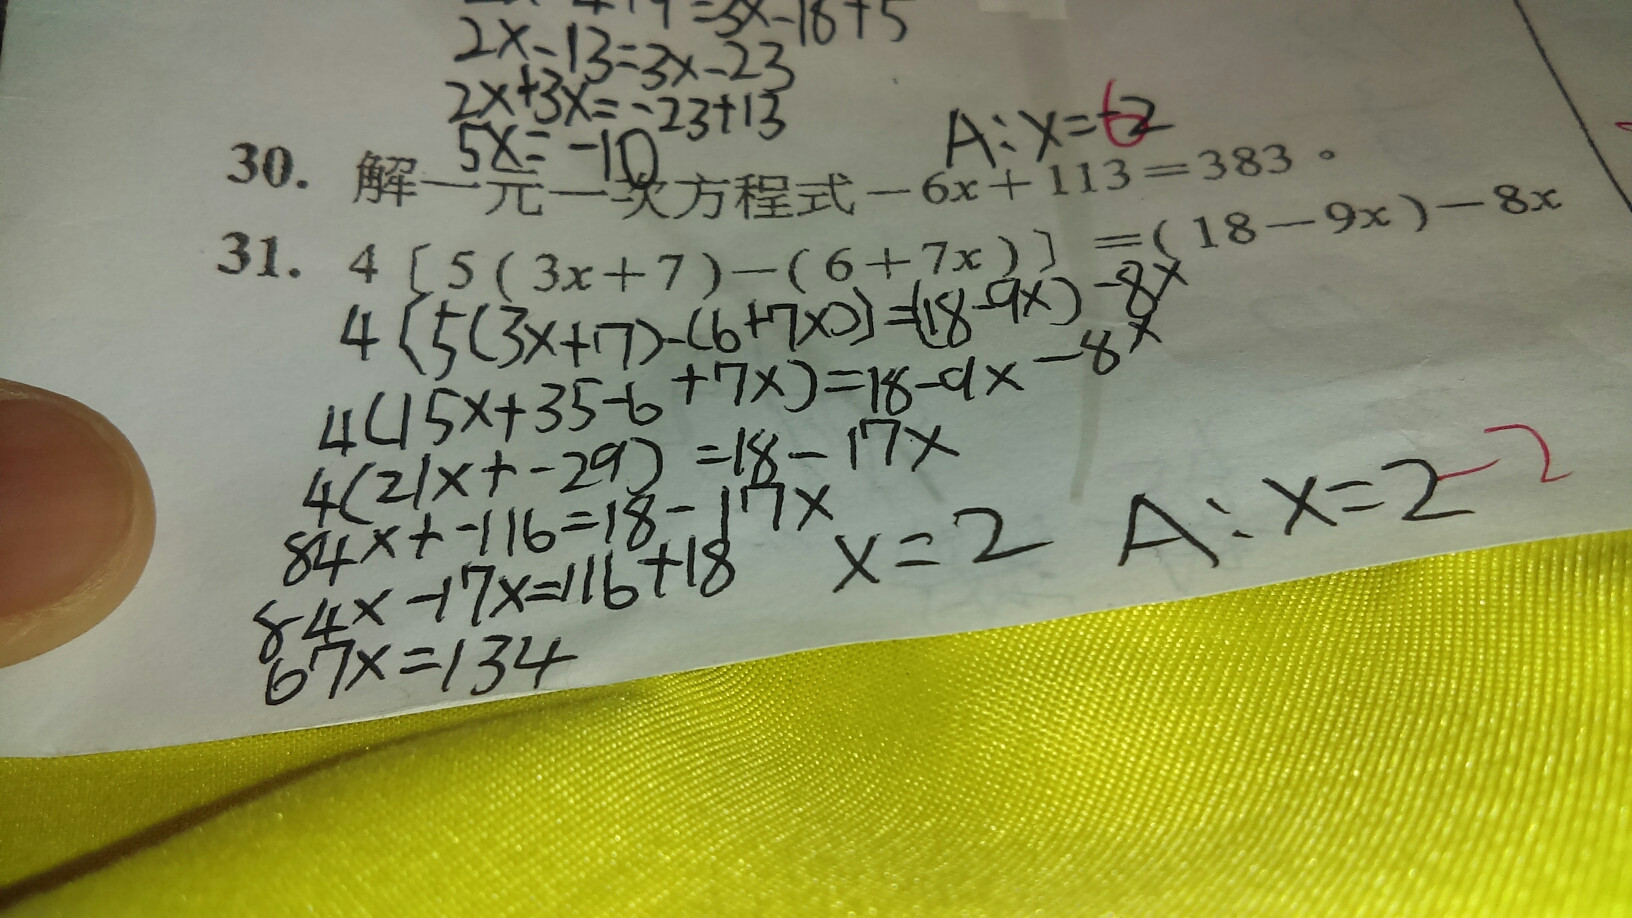 =3x-18+5
2x-13=3x-23
2x+3x=-23+13
5x=-10
A:x=-2 6
30. 解一元一次方程式-6x+113=383。
31. 4[5(3x+7)-(6+7x)]=(18-9x)-8x
4{5(3x+7)-(6+7x)}=(18-9x)-8x
4(15x+35-6+7x)=18-9x-8x
4(21x+-29)=18-17x
84x+-116=18-17x
84x-17x=116+18
67x=134
x=2 A:x=2 -2